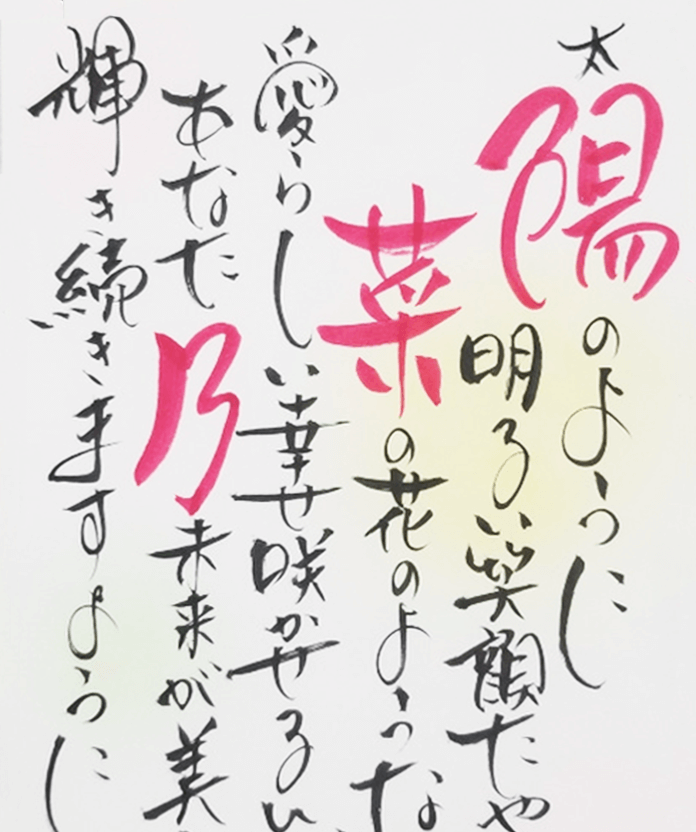 太陽のように
明る い笑顔たや
菜の花のような
愛らしい幸せ咲かせる
あなた乃未来が美
輝き続きますように